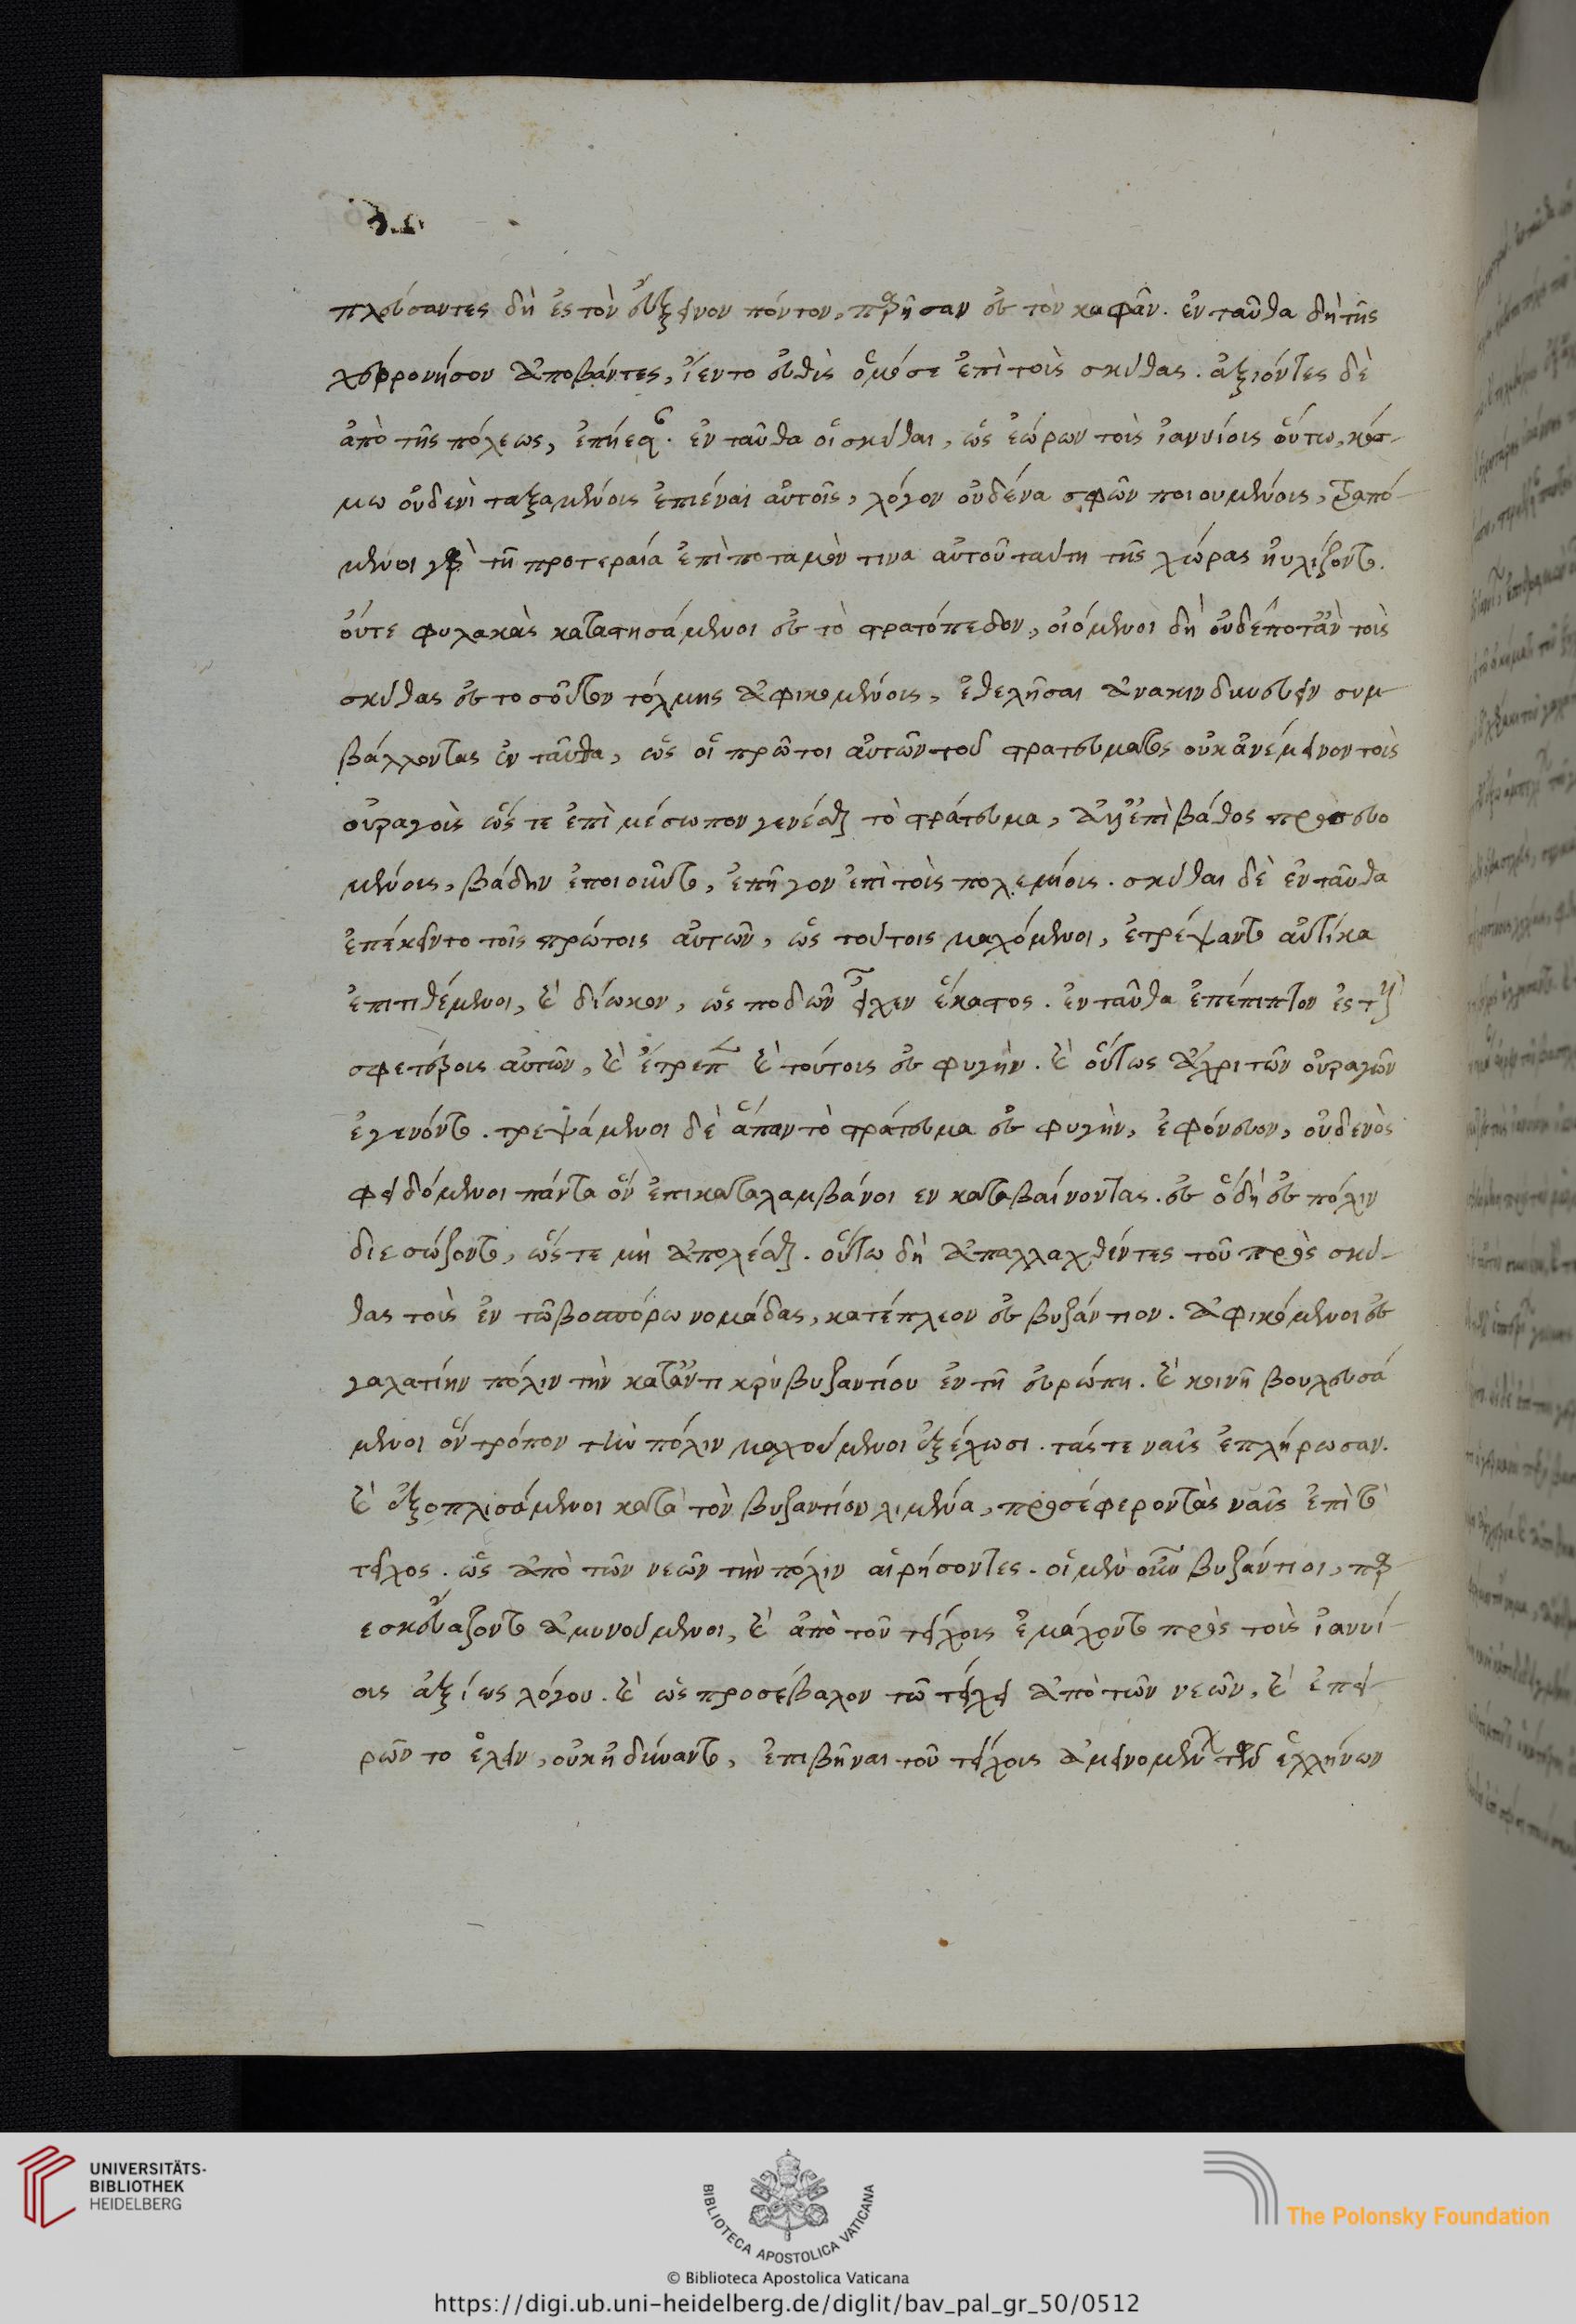 πλεύσαντες δὴ ἐς τὸν εὔξεινον πόντον, παρῆσαν ἐς τὸν καφᾶν. ἐν ταῦθα δὴ τῆς
χερρονήσου ἀποβάντες, ἵεντο εὐθὺς ὁμόσε ἐπὶ τοὺς σκύθας. ἀξιόντες δὲ
ἀπὸ τῆς πόλεως, ἐπῄεσαν. ἐν ταῦθα οἱ σκύθαι, ὡς ἑώρων τοὺς ἰαννίους οὕτω, κόσ-
μω οὐδενὶ ταξαμένους ἐπιέναι αὐτοῖς, λόγον οὐδένα σφῶν ποιουμένους, τραπό-
μενοι γὰρ τῆ προτεραία ἐπὶ ποταμόν τινα αὐτοῦ ταύτη τῆς χώρας ηὐλίζοντο.
οὔτε φυλακὰς καταστησάμενοι ἐς τὸ στρατόπεδον, οἰόμενοι δὴ οὐδέποτ' ἂν τοὺς
σκύθας ἐς τοσοῦτον τόλμης ἀφικομένους, ἐθελῆσαι ἀνακινδυνεύειν συμ
βάλλοντας ἐν ταῦθα, ὡς οἱ πρῶτοι αὐτῶν τοῦ στρατεύματος οὐκ ἀνέμενον τοὺς
οὐραγοὺς ὥς τε ἐπὶ μέσωπον γενέσθαι τὸ στράτευμα, ἀλλ' ἐπὶ βάθος πορευο
μένους, βάδην ἐποιοῦντο, ἐπῆγον ἐπὶ τοὺς πολεμίους. σκύθαι δὲ ἐν ταῦθα
ἐπέκειντο τοῖς πρώτοις αὐτῶν, ὡς τούτοις μαχόμενοι, ἐτρέψαντο αὐτίκα
ἐπιτιθέμενοι, καὶ δίωκον, ὡς ποδῶν εἶχεν ἕκαστος. ἐν ταῦθα ἐπέπιπτον ἐς τοὺς
σφετέρους αὐτῶν, καὶ ἔτρεπον καὶ τούτους ἐς φυγήν. καὶ οὕτως ἄχρι τῶν οὐραγῶν
ἐγένοντο. τρεψάμενοι δὲ ἅπαν τὸ στράτευμα ἐς φυγὴν, ἐφόνευον, οὐδενὸς
φειδόμενοι πάντα ὃν ἐπικαταλαμβάνοιεν καταβαίνοντας. ἐς ὃ δὴ ἐς πόλιν
διεσώζοντο, ὥς τε μὴ ἀπολέσθαι. οὕτω δὴ ἀπαλλαχθέντες τοῦ πρὸς σκύ-
θας τοὺς ἐν τῶ βοσπόρω νομάδας, κατέπλεον ἐς βυζάντιον. ἀφικόμενοι ἐς
γαλατίην πόλιν τὴν καταντικρὺ βυζαντίου ἐν τῆ εὐρώπη. καὶ κοινῆ βουλευσά
μενοι ὃν τρόπον τὴν πόλιν μαχούμενοι ἐξέλωσι. τάς τε ναῦς ἐπλήρωσαν.
καὶ ἐξοπλισάμενοι κατὰ τὸν βυζαντίου λιμένα, προσέφερον τὰς ναῦς ἐπὶ τὸ
τεῖχος. ὡς ἀπὸ τῶν νεῶν τὴν πόλιν αἱρήσοντες. οἱ μὲν οὖν βυζάντιοι, παρ
εσκευάζοντο ἀμυνούμενοι, καὶ ἀπὸ τοῦ τείχους ἐμάχοντο πρὸς τοὺς ἰαννί-
ους ἀξίως λόγου. καὶ ὡς προσέβαλον τῶ τείχει ἀπὸ τῶν νεῶν, καὶ ἐπει-
ρῶντο ἑλεῖν, οὐκ ἠδύναντο, ἐπιβῆναι τοῦ τείχους ἀμυνομένων τῶν ἑλλήνων
UNIVERSITÄTS-
BIBLIOTHEK
HEIDELBERG
BIBLIOTECA APOSTOLICA VATICANA
The Polonsky Foundation
© Biblioteca Apostolica Vaticana
https://digi.ub.uni-heidelberg.de/diglit/bav_pal_gr_50/0512